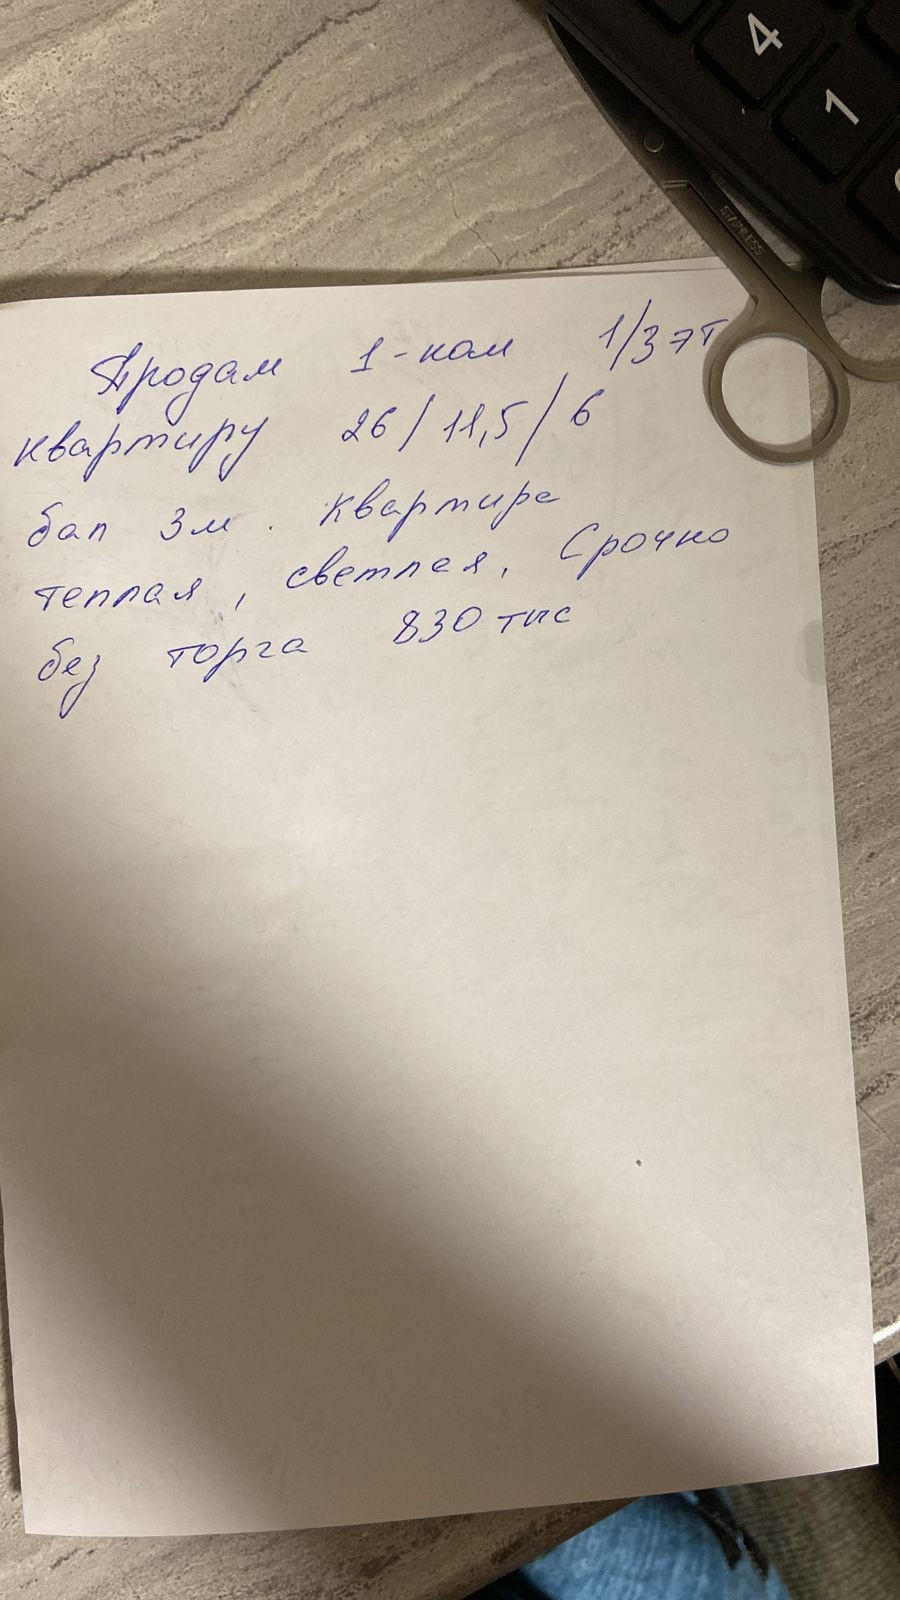 4
1
STAINLESS
Продам 1-ком 1/3 эт
квартиру 26/11,5/6
бал 3м. Квартира
теплая, светлая, Срочно
без торга 830 тыс